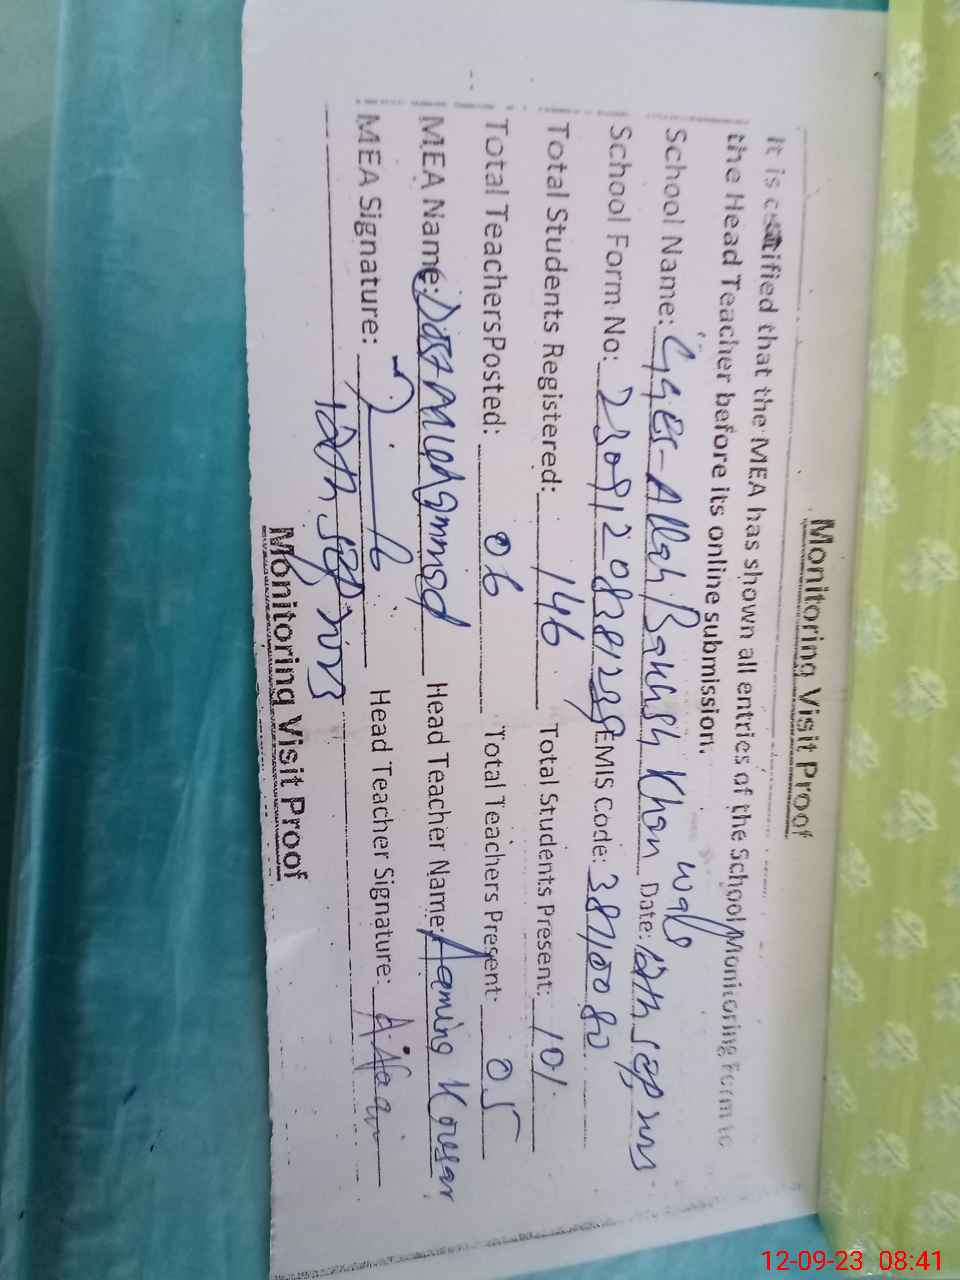 Monitoring Visit Proof
It is certified that the MEA has shown all entries of the School Monitoring Form to
the Head Teacher before its online submission.
School Name: GGES-Allah Bakhsh Khan wala Date: 12th sep
School Form No: EMIS Code: 38410080
Total Students Registered: 146 Total Students Present: 101
Total TeachersPosted: 06 Total Teachers Present: 05
MEA Name: Dost Muhammad Head Teacher Name: Kousar
MEA Signature: Head Teacher Signature:
12th sep 2023
Monitoring Visit Proof
12-09-23 08:41